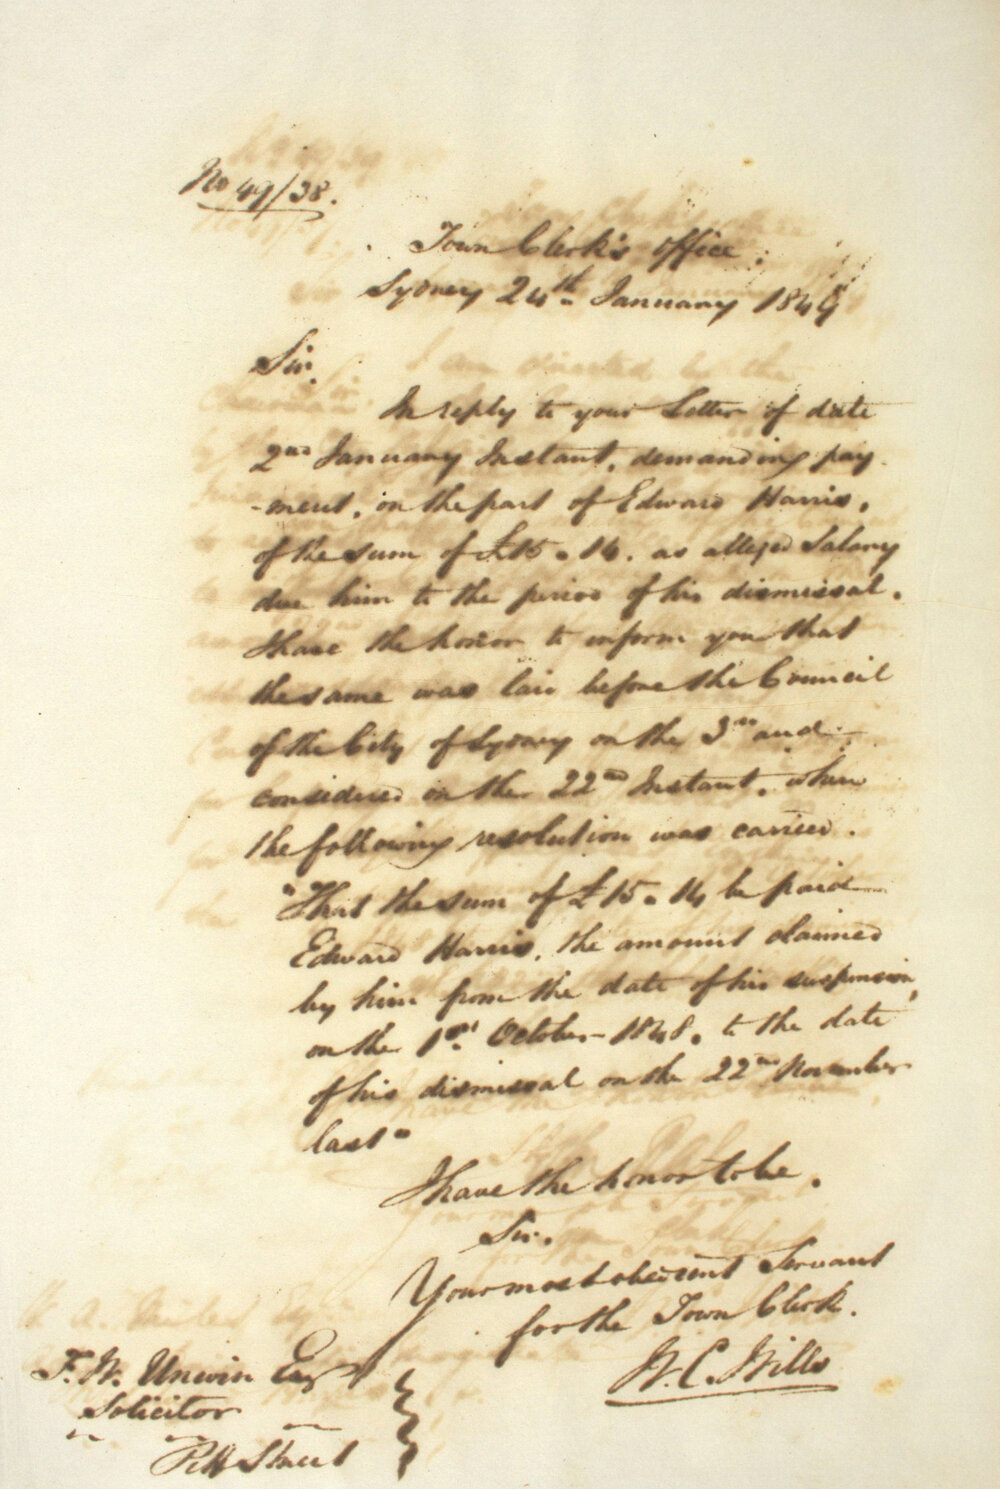 No 49/38.
Town Clerk's Office
Sydney 24th January 1849
Sir,
In reply to your Letter of date
2nd January Instant, demanding pay
-ment, on the part of Edward Harris,
of the sum of £15.14. as alleged Salary
due him to the period of his dismissal,
I have the honor to inform you that
the same was laid before the Council
of the City of Sydney on the 3rd and
considered on the 22nd Instant, when
the following resolution was carried.
"That the sum of £15.14 be paid
Edward Harris, the amount claimed
by him from the date of his suspension,
on the 1st October 1848, to the date
of his dismissal on the 22nd November
last"
I have the honor to be,
Sir.
Your most obedient Servant
for the Town Clerk.
W. C. Wills
F. W. Unwin Esqr
Solicitor
Pitt Street